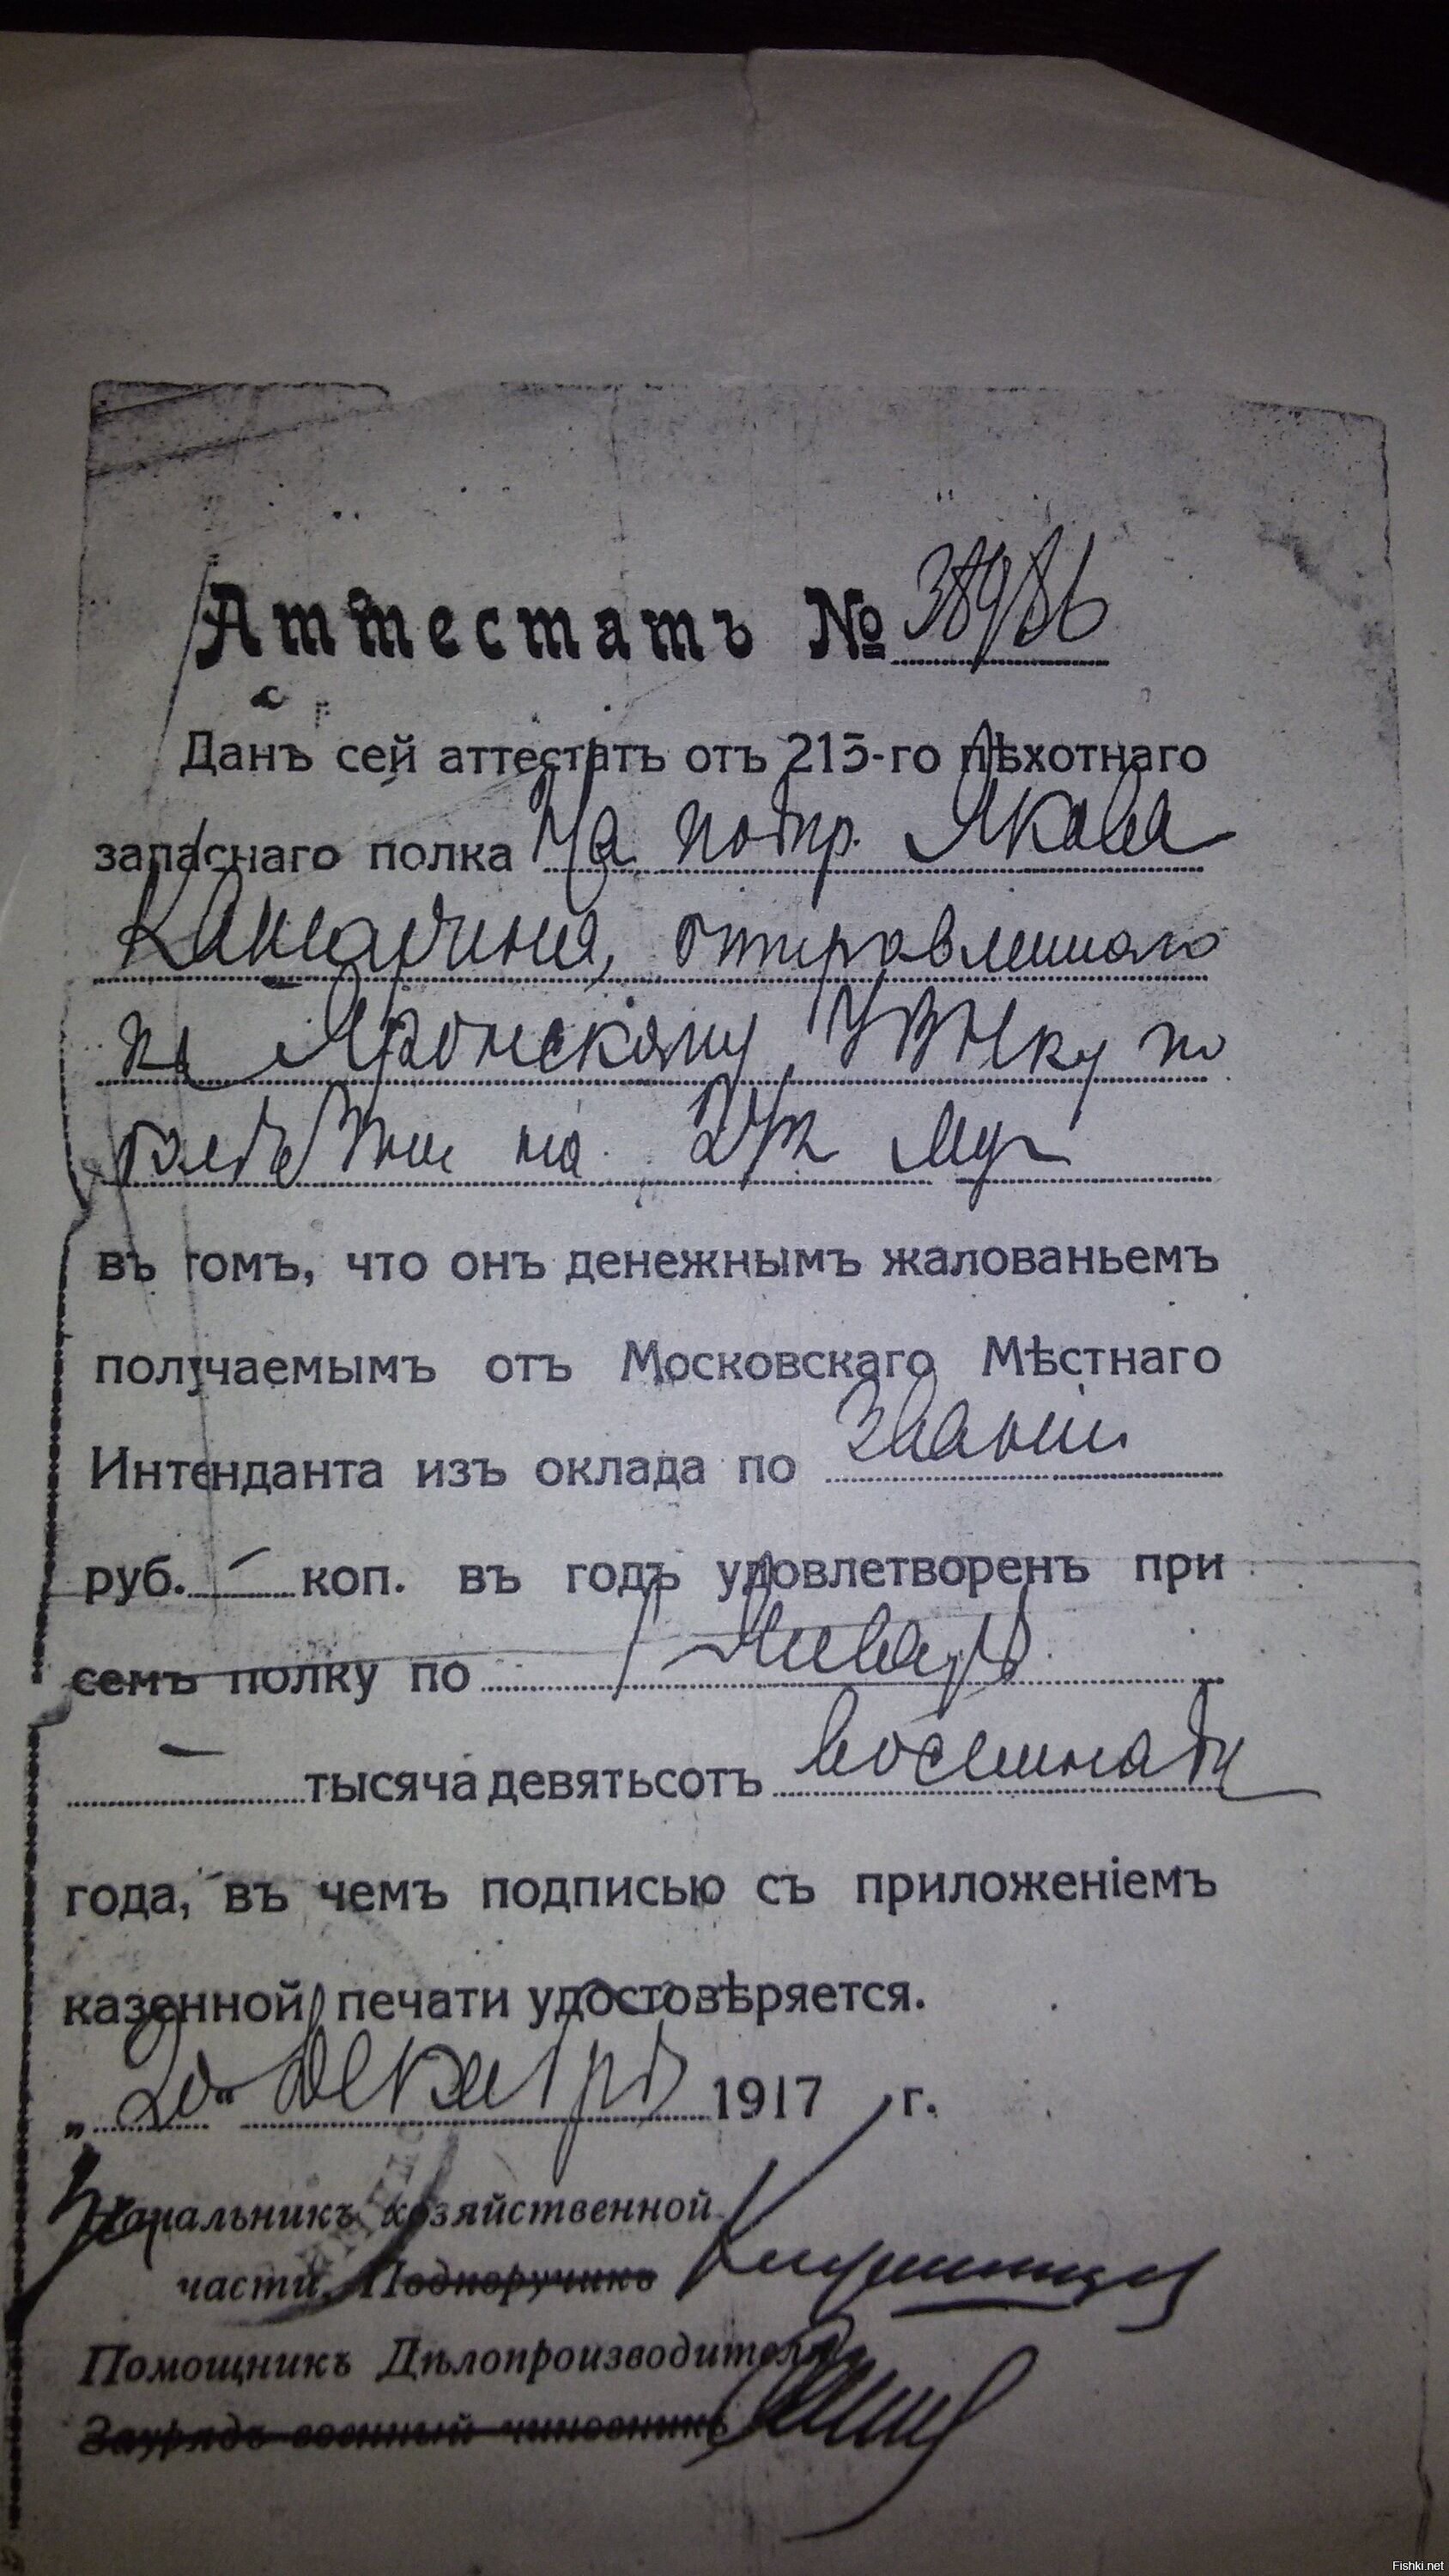 Аттестатъ №
Данъ сей аттестатъ отъ 215-го пѣхотнаго
запаснаго полка На подпр. Якова
отправленнаго
къ Яронскому УВНку по
на
въ томъ, что онъ денежнымъ жалованьемъ
получаемымъ отъ Московскаго Мѣстнаго
Интенданта изъ оклада по званію
руб. — коп. въ годъ удовлетворенъ при
семъ полку по 1 Январь
— тысяча девятьсотъ восемнадц
года, въ чемъ подписью съ приложеніемъ
казенной печати удостовѣряется.
„ 20 " Декабря 1917 г.
Начальникъ хозяйственной
части, Подпоручикъ
Помощникъ Дѣлопроизводителя
Заурядъ военный чиновникъ
Fishki.net